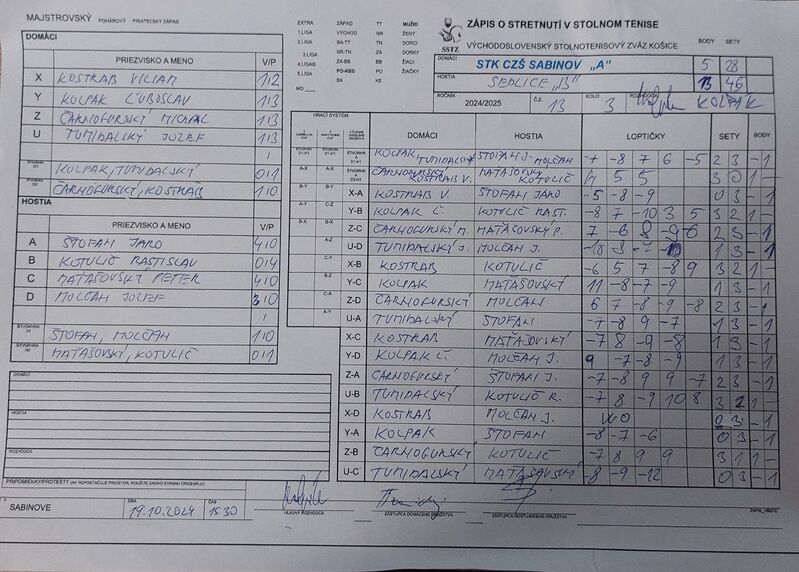 MAJSTROVSKÝ POHÁROVÝ PRIATEĽSKÝ ZÁPAS
EXTRA ZÁPAD TT MUŽI
1.LIGA VÝCHOD NR ŽENY
2.LIGA BA-TT TN DORCI
3.LIGA NR-TN ZA DORKY
4.LIGA ZA-BB BB ŽIACI
5.LIGA PO-KE PO ŽIAČKY
MO BA KE
SSTZ
ZÁPIS O STRETNUTÍ V STOLNOM TENISE
VÝCHODOSLOVENSKÝ STOLNOTENISOVÝ ZVÄZ KOŠICE
BODY SETY
DOMÁCI STK CZŠ SABINOV „A" 5 28
HOSTIA SEDLICE „B" 13 46
ROČNÍK 2024/2025 Č.Z. 13 KOLO 3 ROZHODCA KOLPÁK
DOMÁCI
PRIEZVISKO A MENO V/P
X KOSTRAB VILIAM 1/2
Y KOLPAK ĽUBOSLAV 1/3
Z ČARNOGURSKÝ MICHAL 1/3
U TUMIDALSKÝ JOZEF 1/3
ŠTVORHRA D1 KOLPAK, TUMIDALSKÝ 0/1
ŠTVORHRA D2 ČARNOGURSKÝ, KOSTRAB 1/0
HOSTIA
PRIEZVISKO A MENO V/P
A ŠTOFAN JARO 4/0
B KOTULIČ RASTISLAV 0/4
C MATAŠOVSKÝ PETER 4/0
D MOLČAN JOZEF 3/0
ŠTVORHRA ŠTOFAN, MOLČAN 1/0
ŠTVORHRA MATAŠOVSKÝ, KOTULIČ 0/1
DOMÁCI
HOSTIA
ROZHODCA
HRACÍ SYSTÉM DOMÁCI HOSTIA LOPTIČKY SETY BODY
KOLPAK TUMIDALSKÝ ŠTOFAN J. MOLČAN -7 -8 7 6 -5 2 3 - 1
ČARNOGURSKÝ KOSTRAB V. MATAŠOVSKÝ KOTULIČ 4 5 5 3 0 1 -
X-A KOSTRAB V. ŠTOFAN JARO -5 -8 -9 0 3 - 1
Y-B KOLPAK Ľ. KOTULIČ RAST. -8 7 -10 3 5 3 2 1 -
Z-C ČARNOGURSKÝ M. MATAŠOVSKÝ P. 7 -6 8 -9 -6 2 3 - 1
U-D TUMIDALSKÝ J. MOLČAN J. 1 3 - 1
X-B KOSTRAB KOTULIČ -6 5 7 -8 9 3 2 1 -
Y-C KOLPAK MATAŠOVSKÝ 11 -8 -7 -9 1 3 - 1
Z-D ČARNOGURSKÝ MOLČAN 6 7 -8 -9 -8 2 3 - 1
U-A TUMIDALSKÝ ŠTOFAN -7 -8 9 -7 1 3 - 1
X-C KOSTRAB MATAŠOVSKÝ -7 8 -9 -8 1 3 - 1
Y-D KOLPAK Ľ. MOLČAN J. 9 -7 -8 -9 1 3 - 1
Z-A ČARNOGURSKÝ ŠTOFAN J. -7 -8 9 9 -7 2 3 - 1
U-B TUMIDALSKÝ KOTULIČ R. -7 8 -9 10 8 3 2 1 -
X-D KOSTRAB MOLČAN J. WO 0 3 - 1
Y-A KOLPAK ŠTOFAN -8 -7 -6 0 3 - 1
Z-B ČARNOGURSKÝ KOTULIČ -7 8 9 9 3 1 1 -
U-C TUMIDALSKÝ MATAŠOVSKÝ -8 -9 -12 0 3 - 1
PRIPOMIENKY/PROTESTY (AK NEPOSTAČUJE PRIESTOR, POUŽITE ZADNÚ STRANU ORIGINÁLU)
V SABINOVE DŇA 19.10.2024 ČAS 15.30
HLAVNÝ ROZHODCA ZÁSTUPCA DOMÁCEHO DRUŽSTVA ZÁSTUPCA HOSŤUJÚCEHO DRUŽSTVA